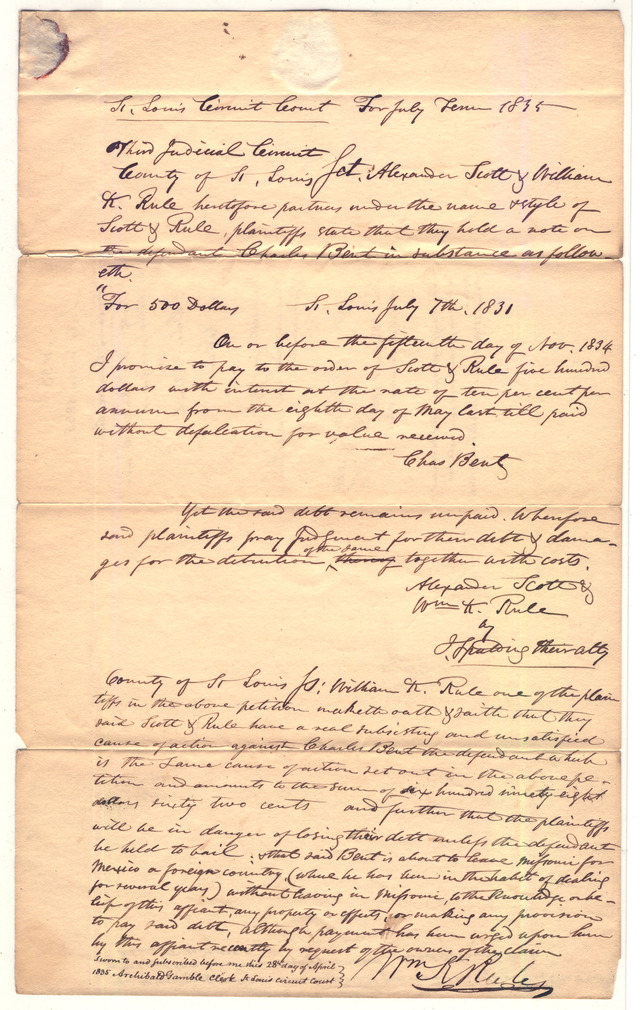 St. Louis Circuit Court For July Term 1835
Third Judicial Circuit
County of St. Louis Sct. Alexander Scott & William
K. Rule heretofore partners under the name & style of
Scott & Rule, plaintiffs state that they hold a note on
defendant Charles Bent in substance as follow
eth.
"For 500 Dollars St. Louis July 7th. 1831
On or before the fifteenth day of Nov. 1834
I promise to pay to the order of Scott & Rule five hundred
dollars with interest at the rate of ten per cent per
annum from the eighth day of May last till paid
without defalcation for value received.
Chas Bent
Yet the said debt remains unpaid. Wherefore
said plaintiffs pray Judgment for their debt & dama-
ges for the detention of the same thereof together with costs.
Alexander Scott &
Wm K. Rule
by
J. Spalding their atty
County of St Louis Ss: William K. Rule one of the plain
tiffs in the above petition maketh oath & saith that they
said Scott & Rule have a real subsisting and unsatisfied
cause of action against Charles Bent the defendant which
is the same cause of action set out in the above pe-
tition and amounts to the sum of six hundred ninety eight
dollars sixty two cents and further that the plaintiffs
will be in danger of losing their debt unless the defendant
be held to bail: that said Bent is about to leave Missouri for
Mexico a foreign country (where he has been in the habit of dealing
for several years) without leaving in Missouri, to the knowledge or be-
lief of this affiant, any property or effects, or making any provision
to pay said debt, although payment has been urged upon him
by this affiant recently by request of the owners of the claim
Wm K Rule
Sworn to and subscribed before me this 28th day of April
1835 Archibald Gamble Clerk St Louis circuit Court